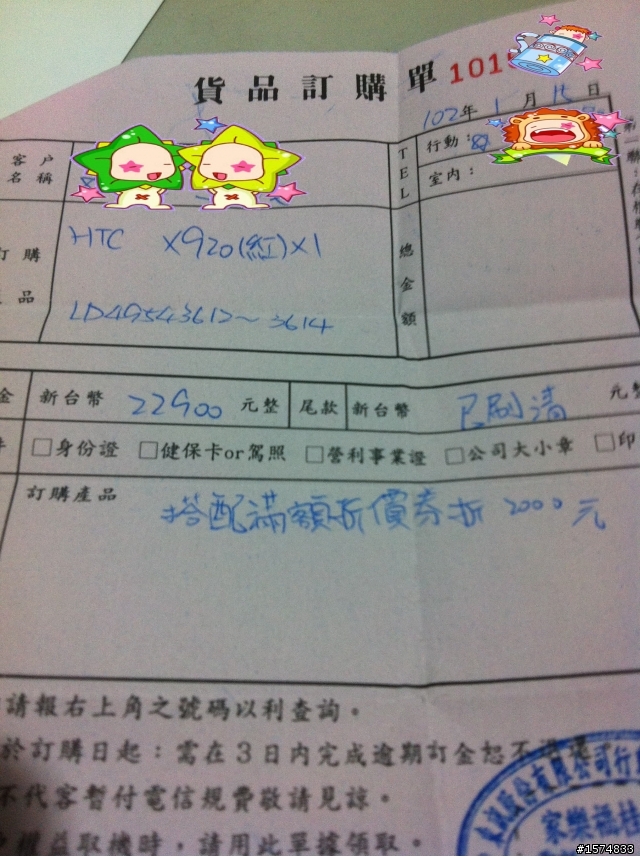 貨品訂購單 101
102年 1月15日
客戶名稱
TEL
行動：
室內：
訂購
品
HTC X920(紅)X1
LD49543612～3614
總金額
金 新台幣 22900 元整 尾款 新台幣 已刷清 元整
件 □身份證 □健保卡or駕照 □營利事業證 □公司大小章 □印
訂購產品 搭配滿額折價券折 2000元
請報右上角之號碼以利查詢。
於訂購日起：需在3日內完成逾期訂金恕不退還
不代客暫付電信規費敬請見諒。
權益取機時，請用此單據領取。
股份有限公司
家樂福
#1574833